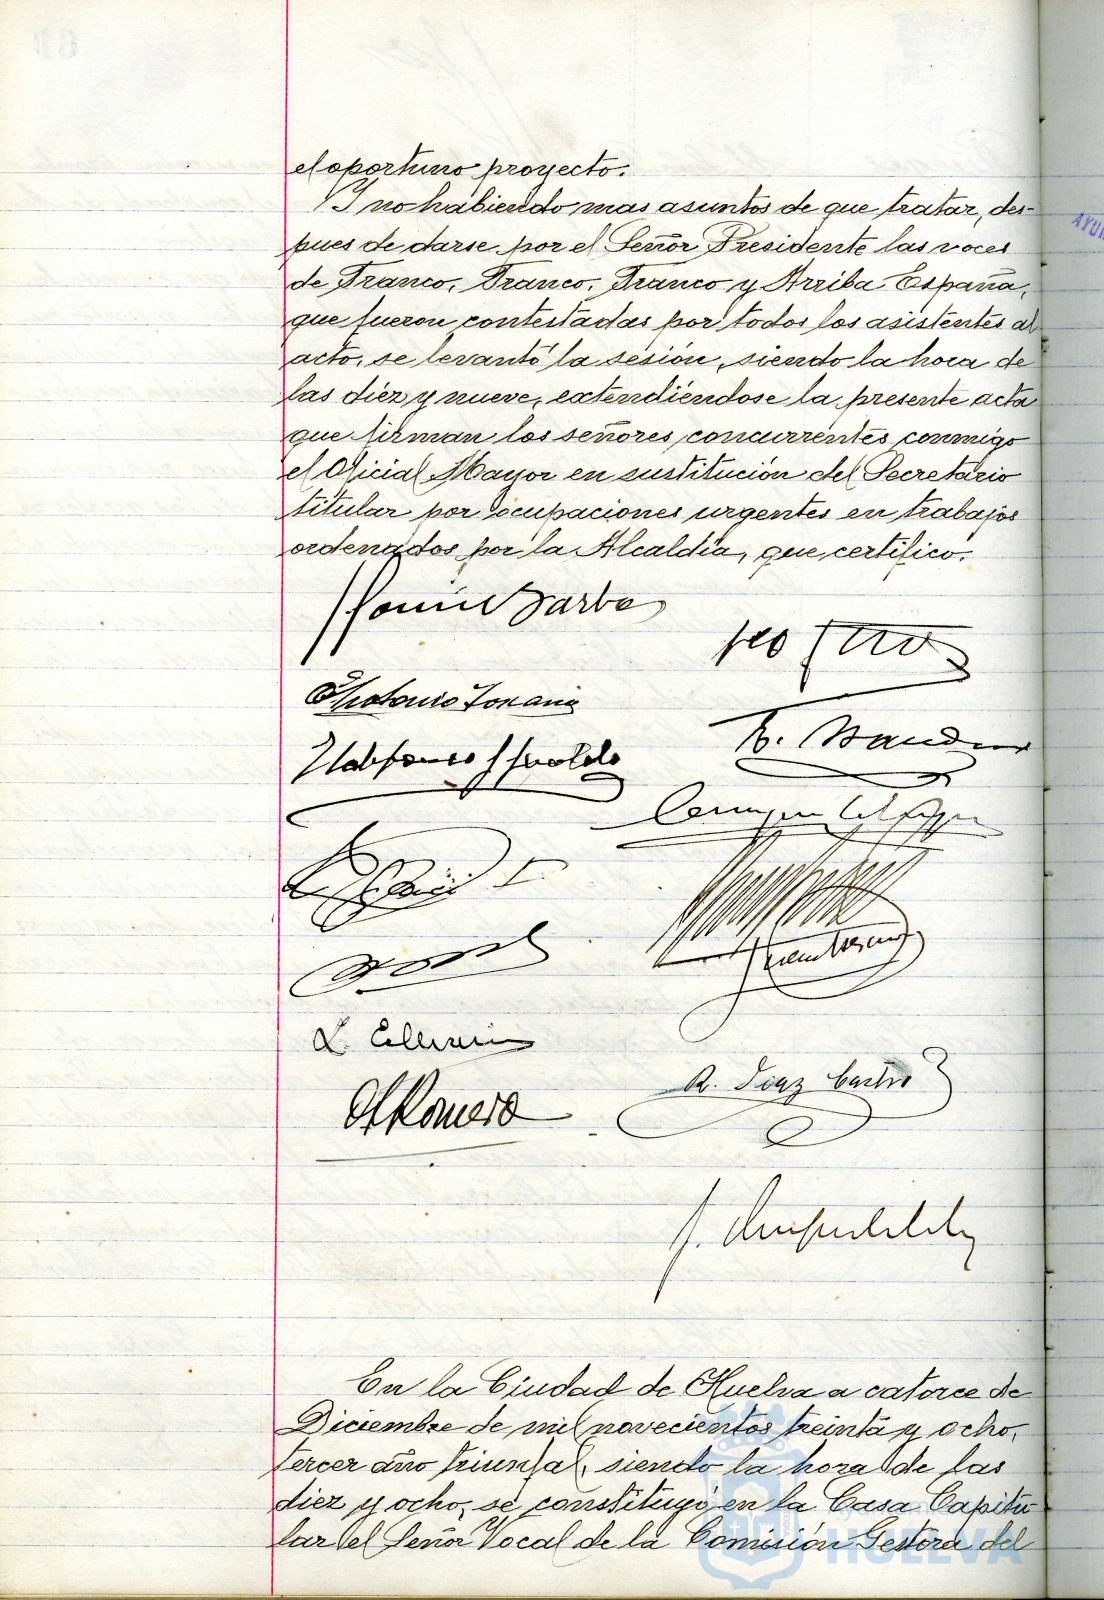 el oportuno proyecto.
Y no habiendo mas asuntos de que tratar, des-
pues de darse por el Señor Presidente las voces
de Franco, Franco, Franco y Arriba España,
que fueron contestadas por todos los asistentes al
acto, se levantó la sesión, siendo la hora de
las diéz y nueve, extendiéndose la presente acta
que firman los señores concurrentes conmigo
el Oficial Mayor en sustitución del Secretario
titular por ocupaciones urgentes en trabajos
ordenados por la Alcaldía, que certifico.
Barba
R. Diaz Castro
Romero
En la Ciudad de Huelva a catorce de
Diciembre de mil novecientos treinta y ocho,
tercer año triunfal, siendo la hora de las
diez y ocho, se constituyó en la Casa Capitu
lar el Señor Vocal de la Comisión Gestora del
HUELVA